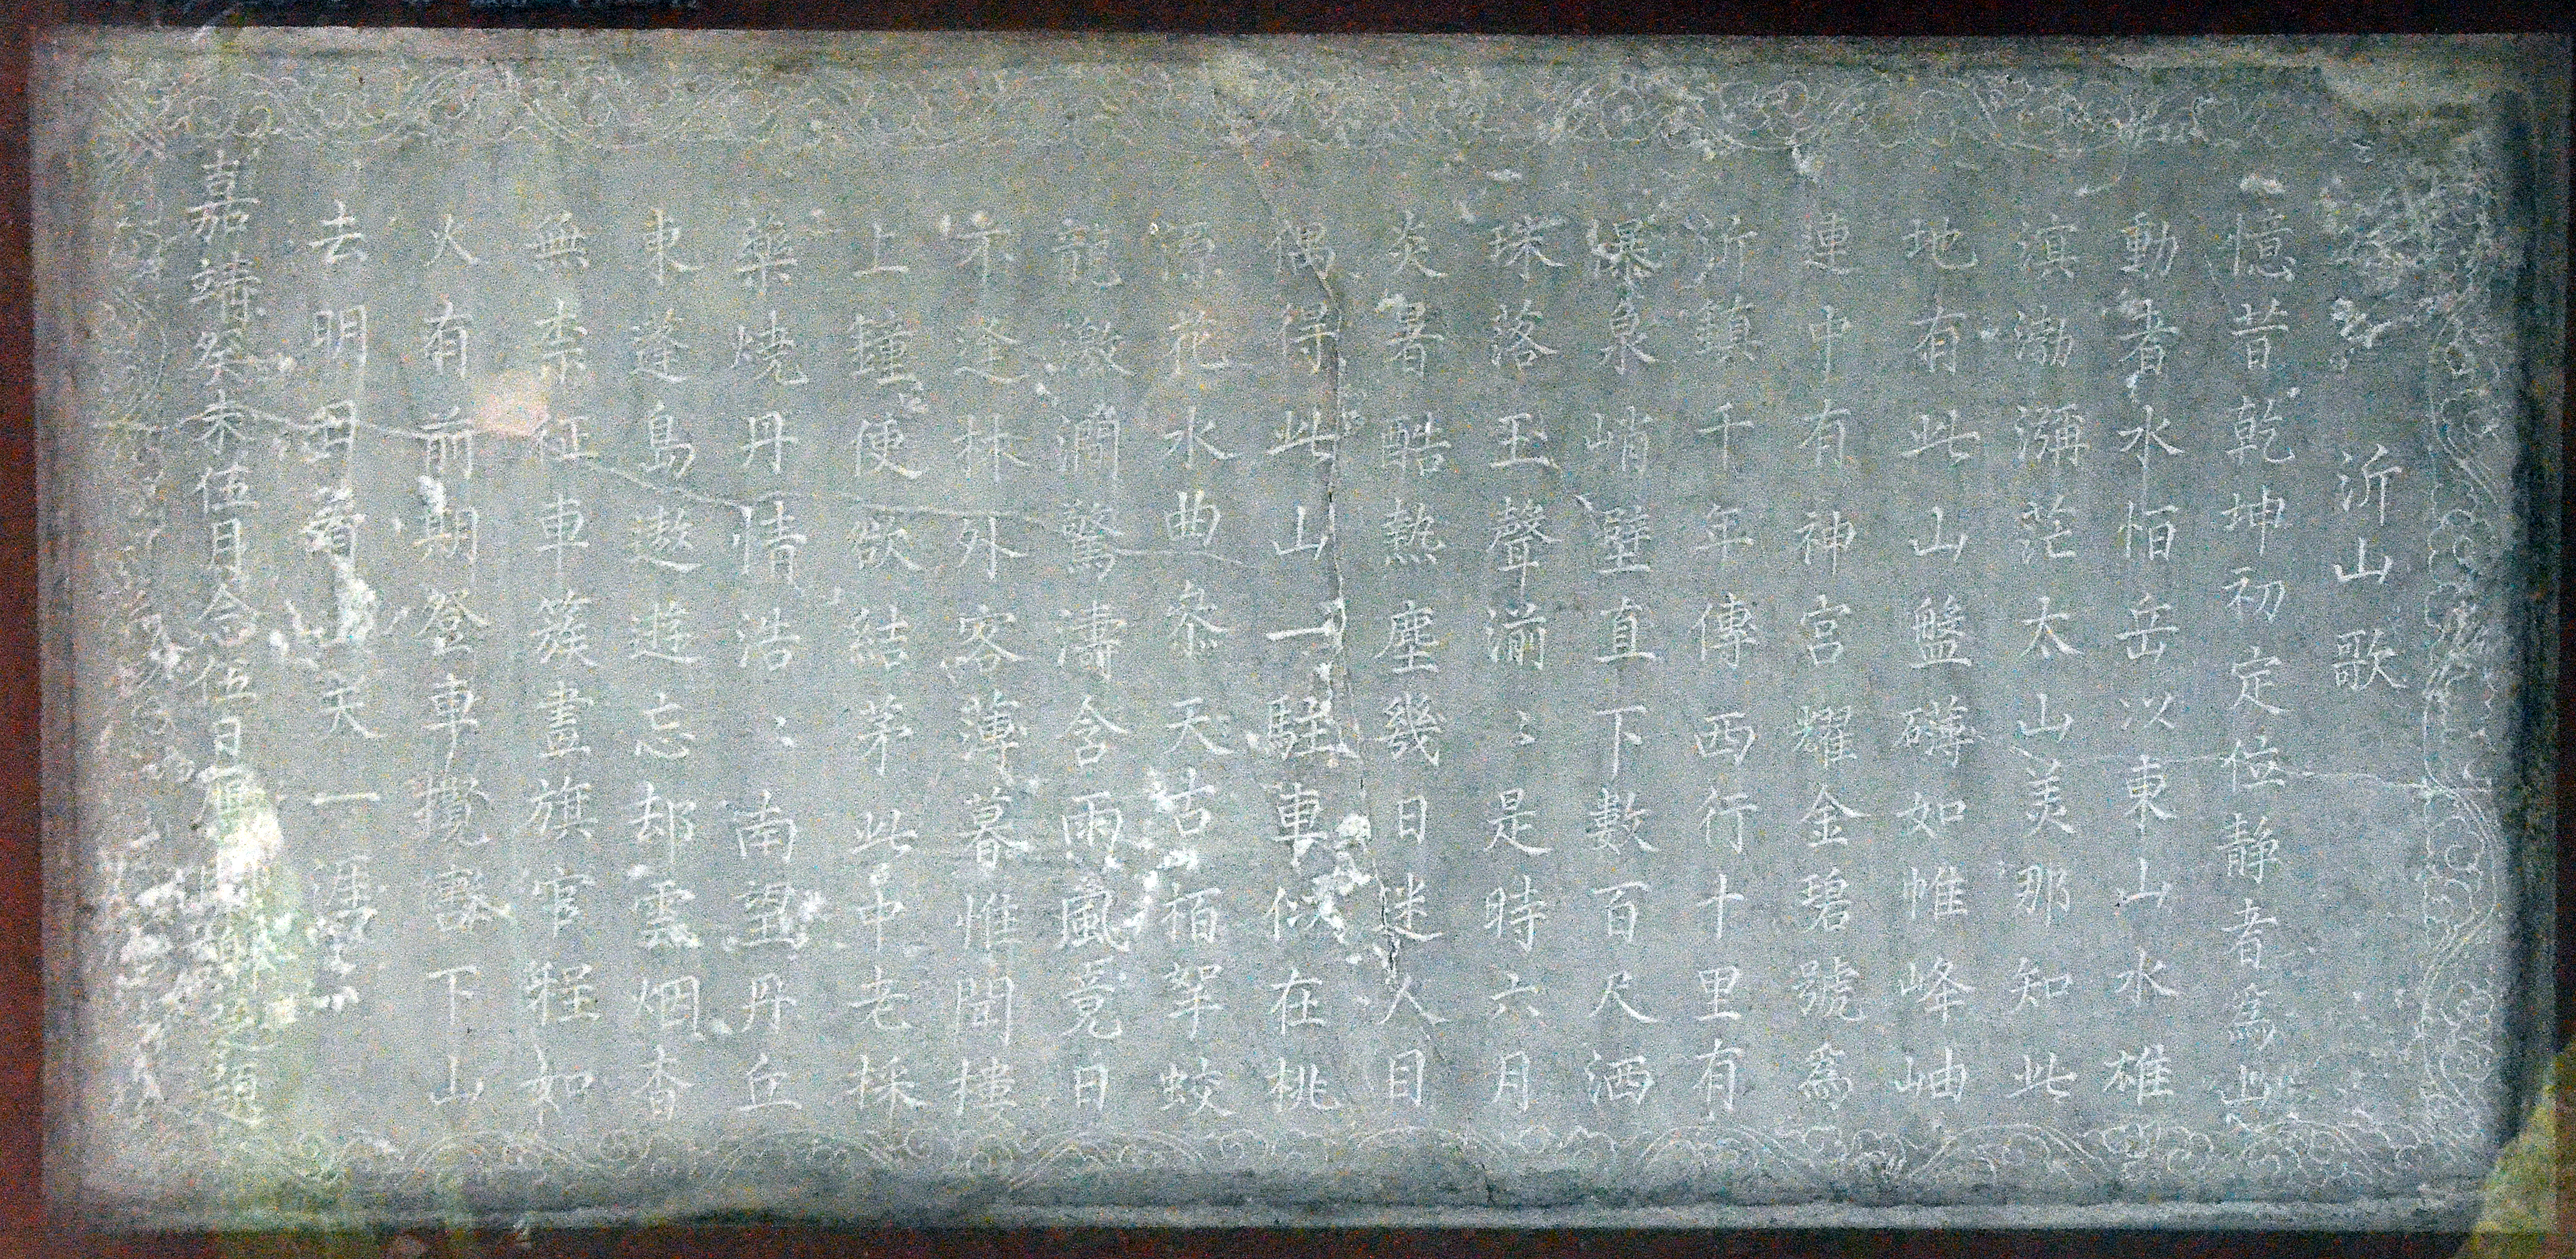 沂山歌
憶昔乾坤初定位靜者為山
動者水恒岳以東山水雄
滇渤瀰茫太山美那知此
地有此山盤礴如帷峰岫
連中有神宮耀金碧號為
沂鎮千年傳西行十里有
瀑泉峭壁直下數百尺洒
珠落玉聲湔〻是時六月
炎暑酷熱塵幾日迷人目
偶得此山一駐車似在桃
源花水曲叅天古栢挐蛟
龍激澗驚濤含雨風竟日
不逢林外客薄暮惟聞樓
上鐘便欲結茅此中老採
藥燒丹情浩〻南望丹丘
東蓬島遨遊忘却雲烟杳
無柰征車簇畫旗官程如
火有前期登車攬轡下山
去明日看山天一涯
嘉靖癸未伍日念伍日題